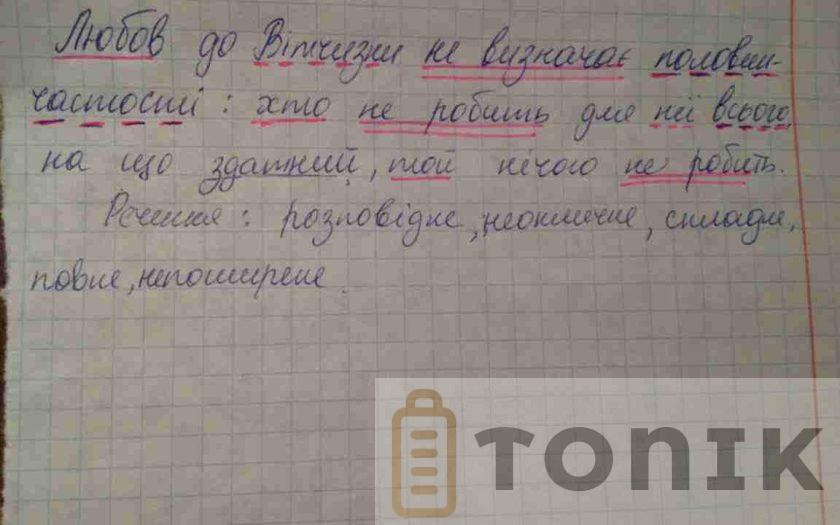 Любов до Вітчизни не визначає половин-
частості: хто не робить для неї всього,
на що здатний, той нічого не робить.
Речення: розповідне, неокличне, складне,
повне, непоширене.
TONIK